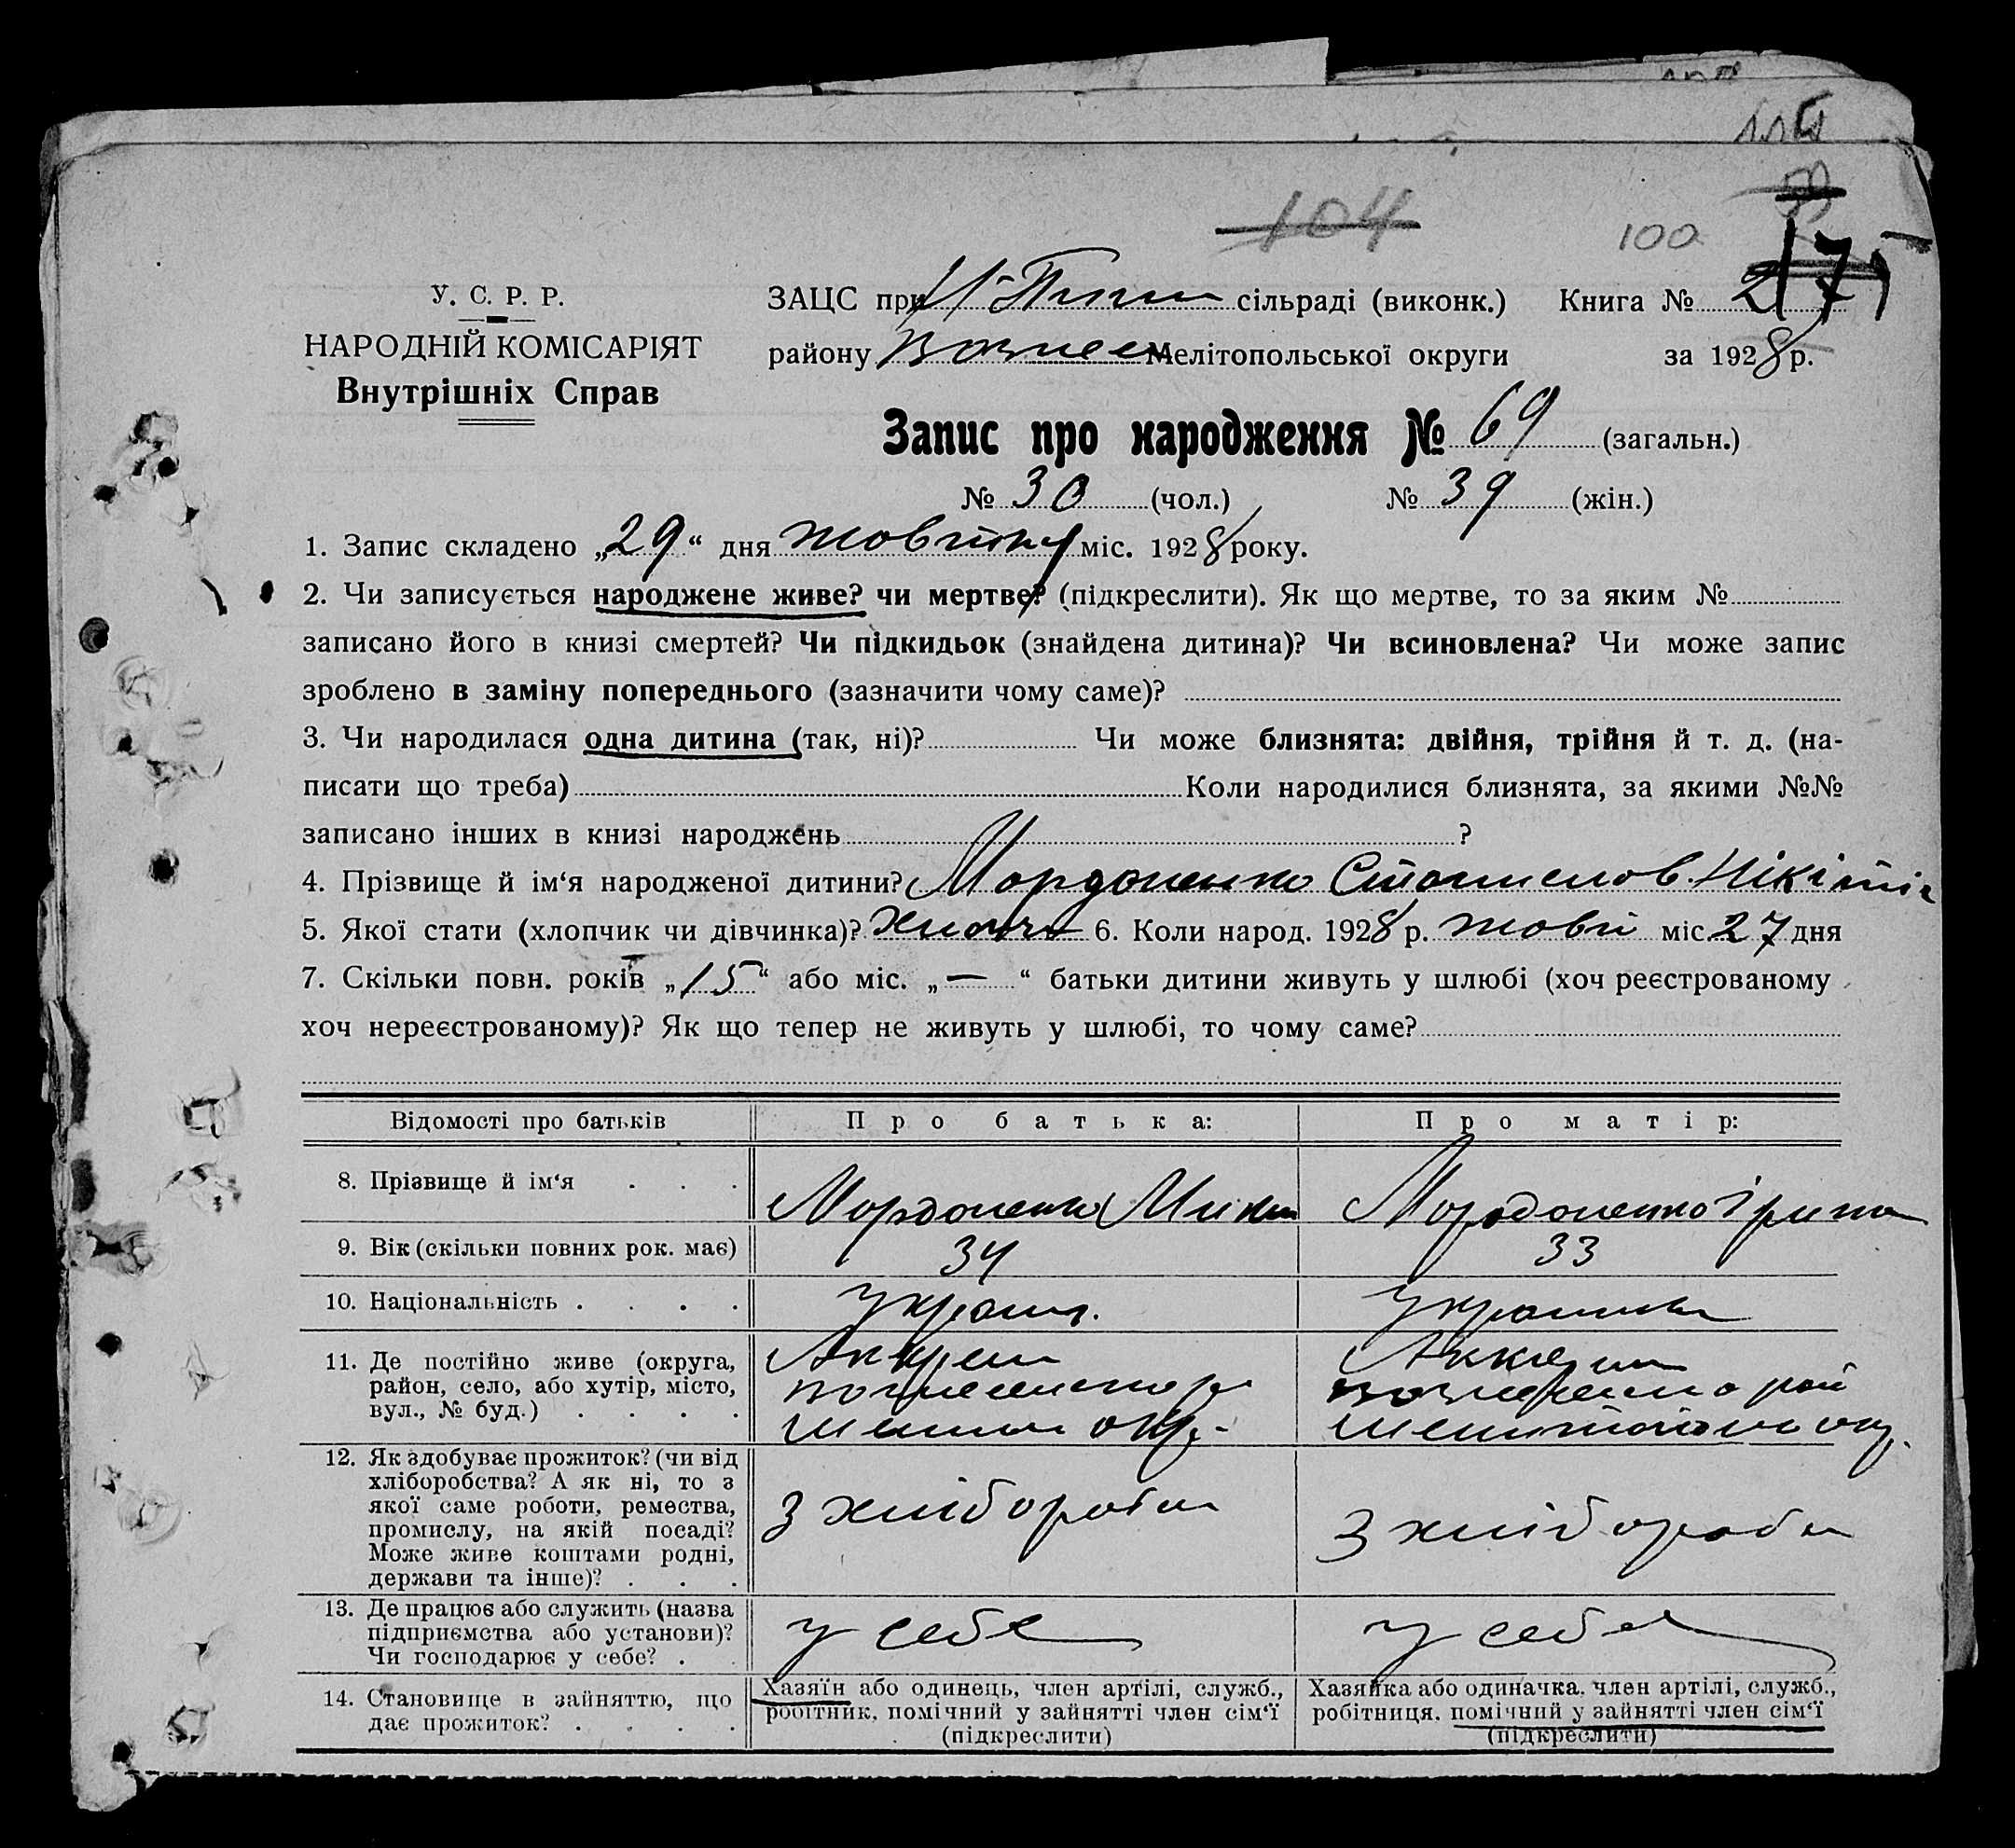 104
100
175
У. С. Р. Р.
НАРОДНІЙ КОМІСАРІЯТ
Внутрішніх Справ
ЗАЦС при сільраді (виконк.) Книга № 2
району Вознес Мелітопольської округи за 1928 р.
Запис про народження № 69 (загальн.)
№ 30 (чол.) № 39 (жін.)
1. Запис складено „29“ дня жовтня міс. 1928 року.
2. Чи записується народжене живе? чи мертве? (підкреслити). Як що мертве, то за яким №
записано його в книзі смертей? Чи підкидьок (знайдена дитина)? Чи всиновлена? Чи може запис
зроблено в заміну попереднього (зазначити чому саме)?
3. Чи народилася одна дитина (так, ні)? Чи може близнята: двійня, трійня й т. д. (на-
писати що треба) Коли народилися близнята, за якими №№
записано інших в книзі народжень ?
4. Прізвище й ім‘я народженої дитини? Мордоненко Станислов. Нікітіч
5. Якої стати (хлопчик чи дівчинка)? хлопч 6. Коли народ. 1928 р. жовт міс. 27 дня
7. Скільки повн. років „15“ або міс. „—“ батьки дитини живуть у шлюбі (хоч реєстрованому
хоч нереєстрованому)? Як що тепер не живуть у шлюбі, то чому саме?
Відомості про батьків Про батька: Про матір:
8. Прізвище й ім‘я . . . Мордоненко Мордоненко Ірина
9. Вік (скільки повних рок. має) 34 33
10. Національність . . . . україн. українка
11. Де постійно живе (округа,
район, село, або хутір, місто,
вул., № буд.) . . . .
окр.
12. Як здобуває прожиток? (чи від
хліборобства? А як ні, то з
якої саме роботи, ремества,
промислу, на якій посаді?
Може живе коштами родні,
держави та інше)? . . .
З хлібороби З хлібороби
13. Де працює або служить (назва
підприємства або установи)?
Чи господарює у себе? .
у себе у себе
14. Становище в зайняттю, що
дає прожиток? . . . .
Хазяїн або одинець, член артілі, служб.,
робітник, помічний у зайнятті член сім‘ї
(підкреслити)
Хазяйка або одиначка, член артілі, служб.,
робітниця, помічний у зайнятті член сім‘ї
(підкреслити)